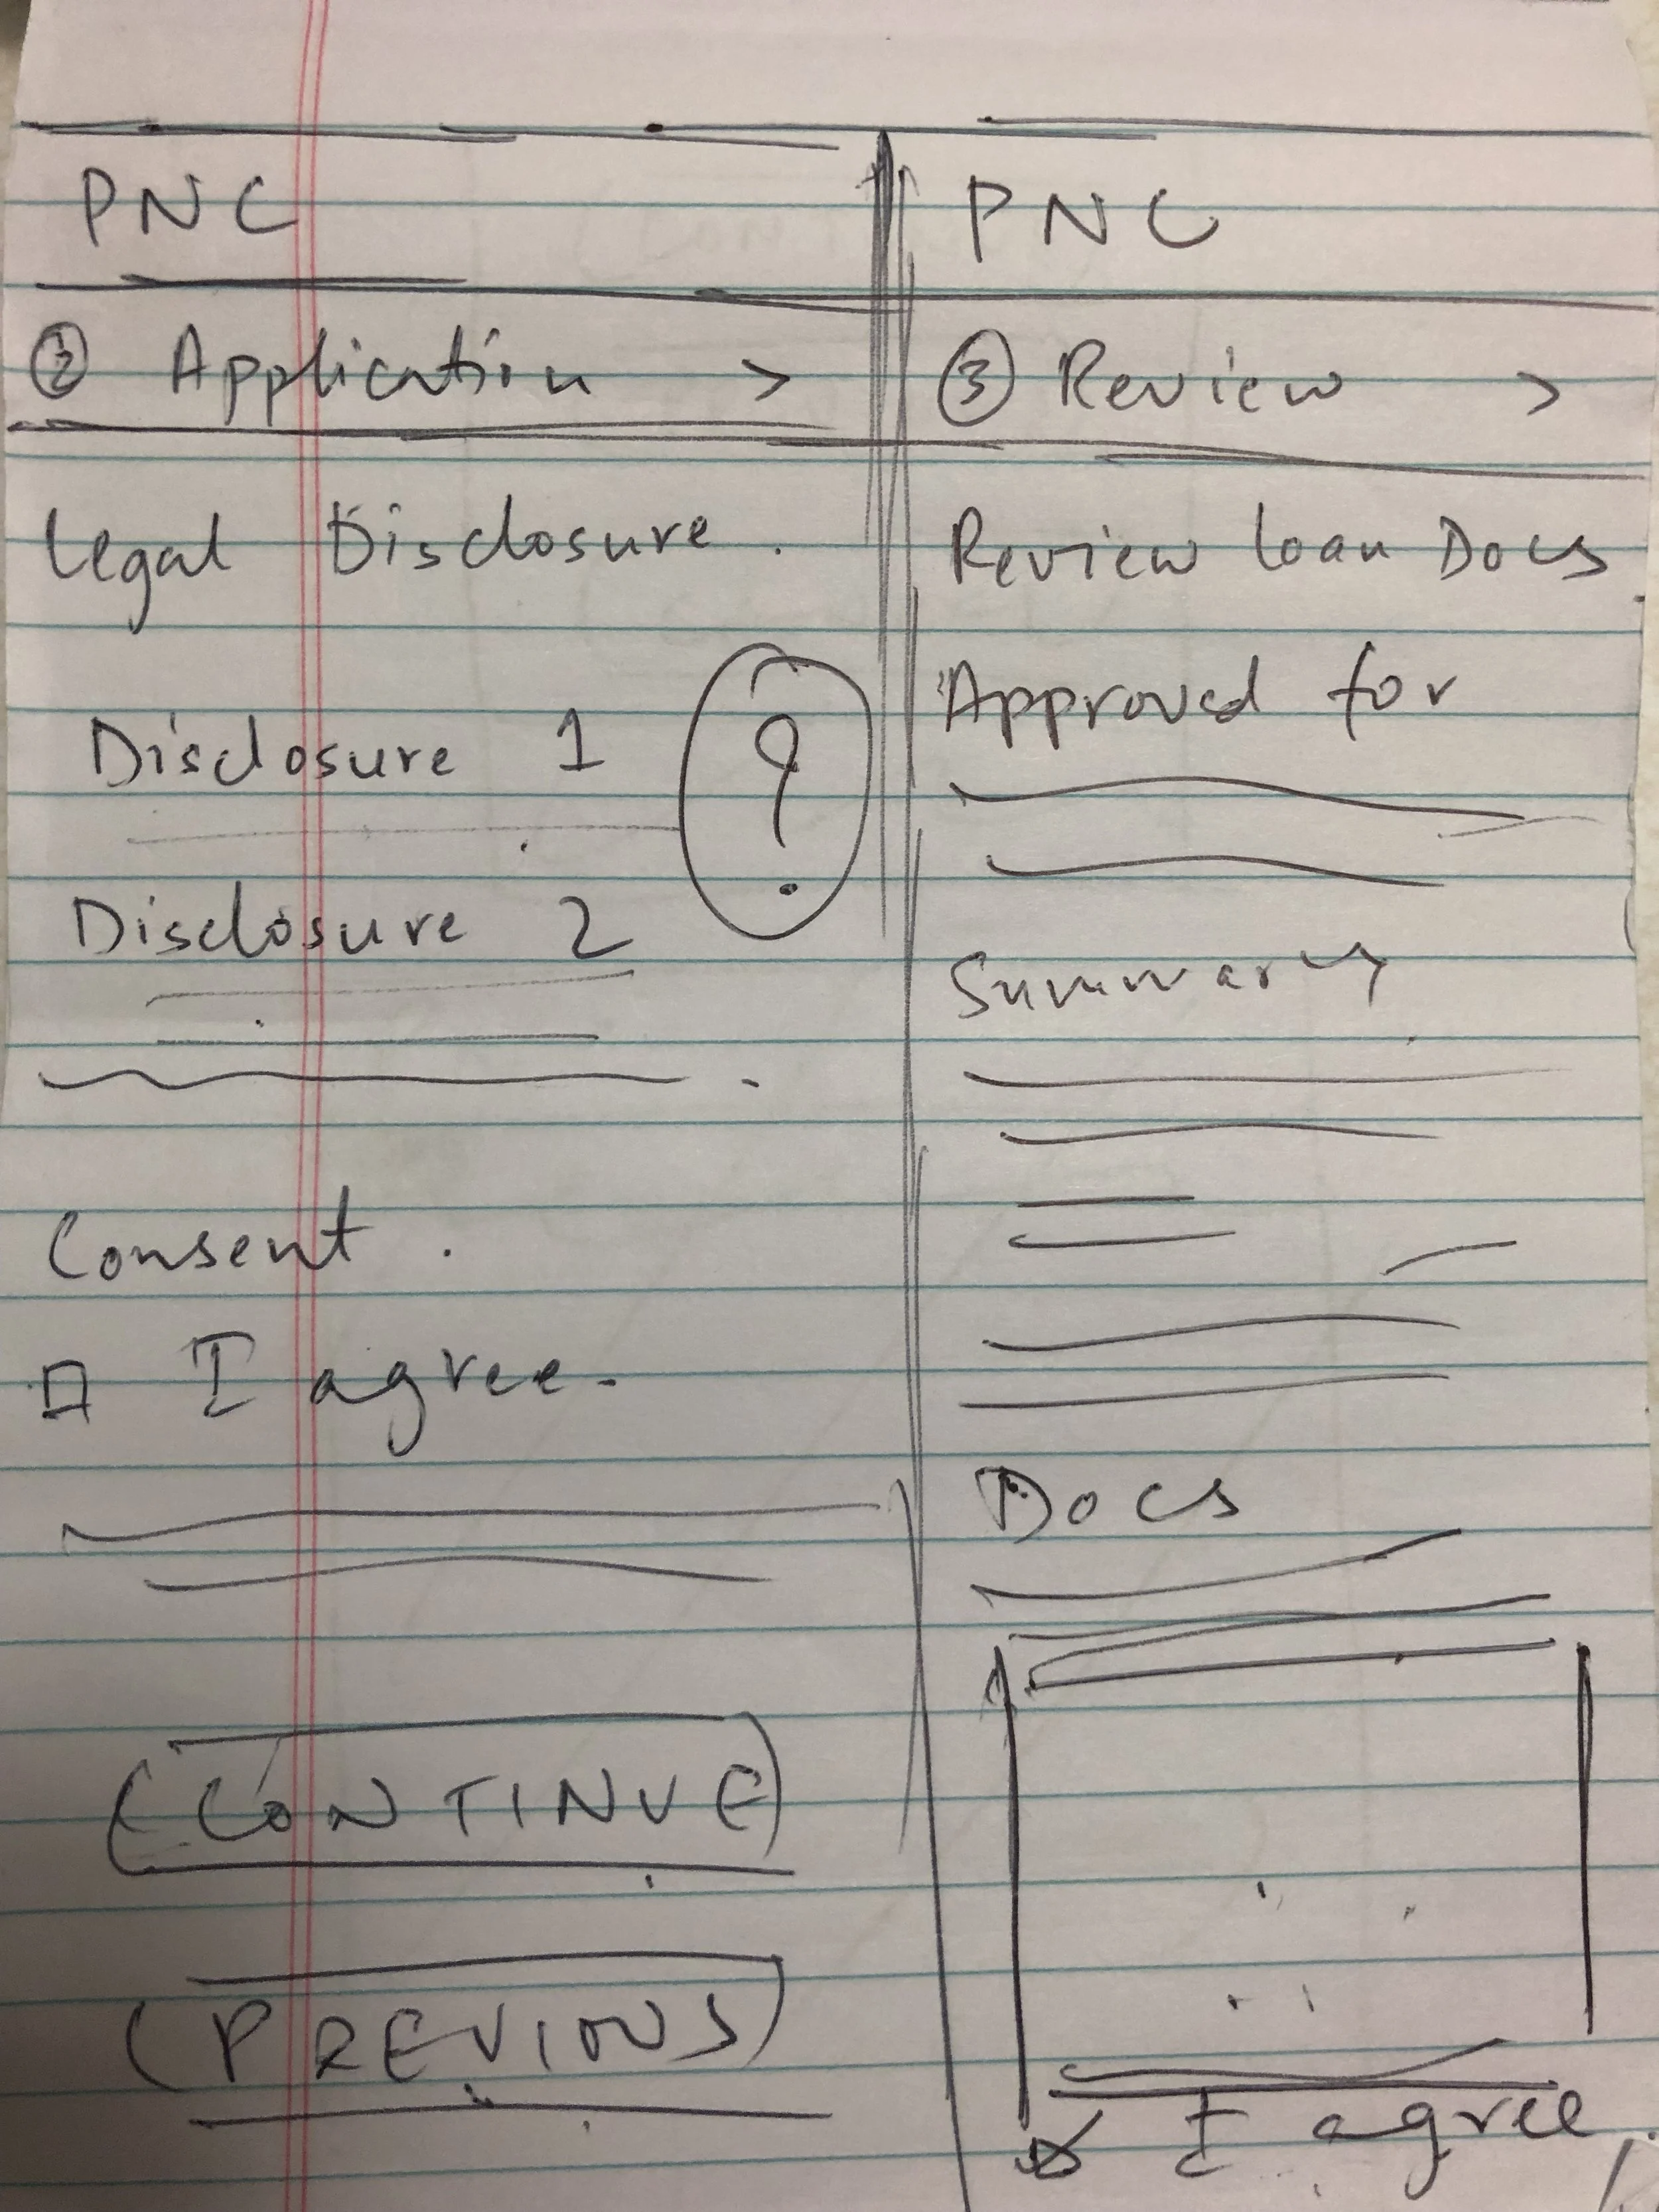 PNC
② Application >
Legal Disclosure.
Disclosure 1
?
Disclosure 2
Consent.
I agree.
CONTINUE
PREVIOUS
PNC
③ Review >
Review Loan Docs
Approved for
Summary
Docs
I agree